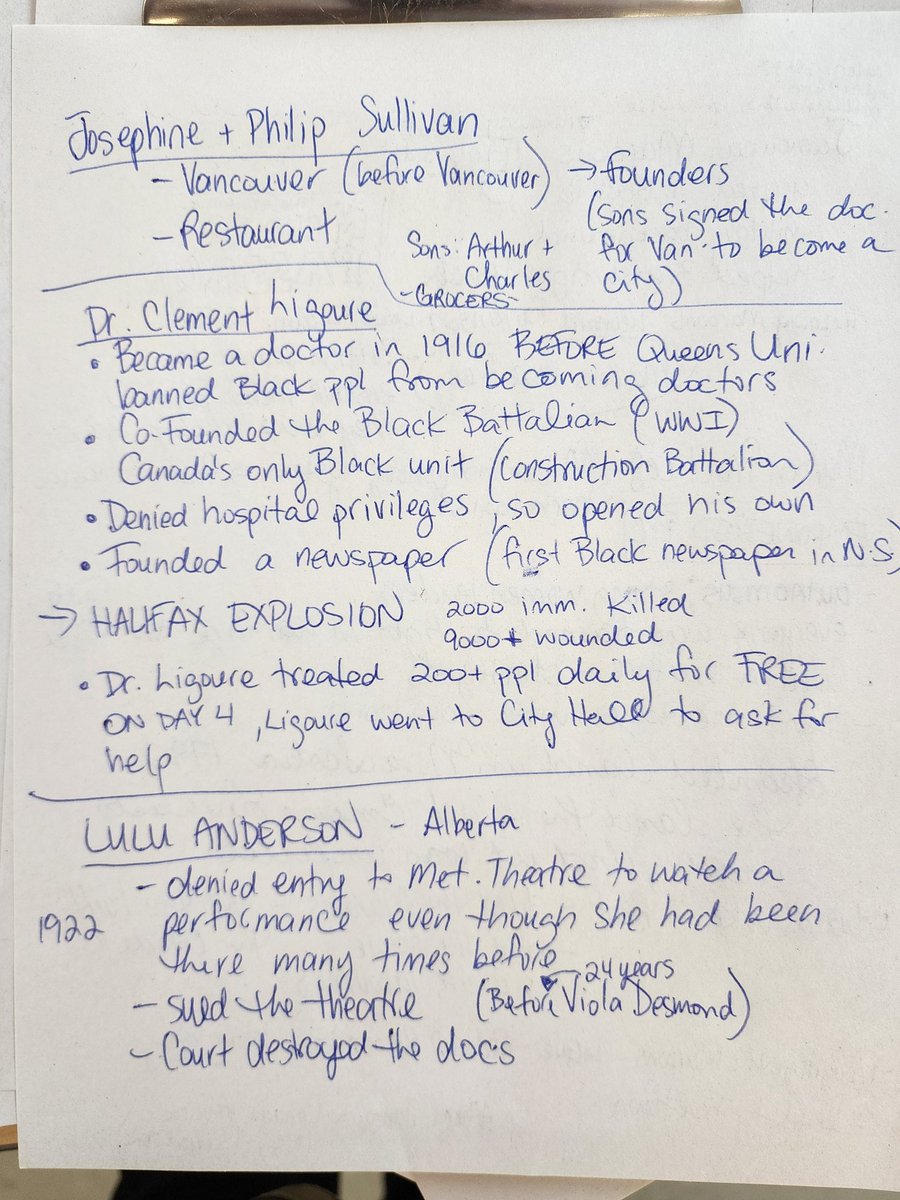 Josephine + Philip Sullivan
- Vancouver (before Vancouver) → founders
(sons signed the doc.
for Van. to become a
city)
- Restaurant
Sons: Arthur +
Charles
- GROCERS -
Dr. Clement Ligoure
• Became a doctor in 1916 BEFORE Queens Uni.
banned Black ppl from becoming doctors
• Co-Founded the Black Battalian (WWI)
Canada's only Black unit (Construction Battalian)
• Denied hospital privileges, so opened his own
• Founded a newspaper (first Black newspaper in N.S)
→ HALIFAX EXPLOSION 2000 imm. Killed
9000+ wounded
• Dr. Ligoure treated 200+ ppl daily for FREE
ON DAY 4, Ligoure went to City Hall to ask for
help
LULU ANDERSON - Alberta
- denied entry to Met. Theatre to watch a
1922 performance even though She had been
there many times before
24 years
- sued the theatre (Before Viola Desmond)
- Court destroyed the docs